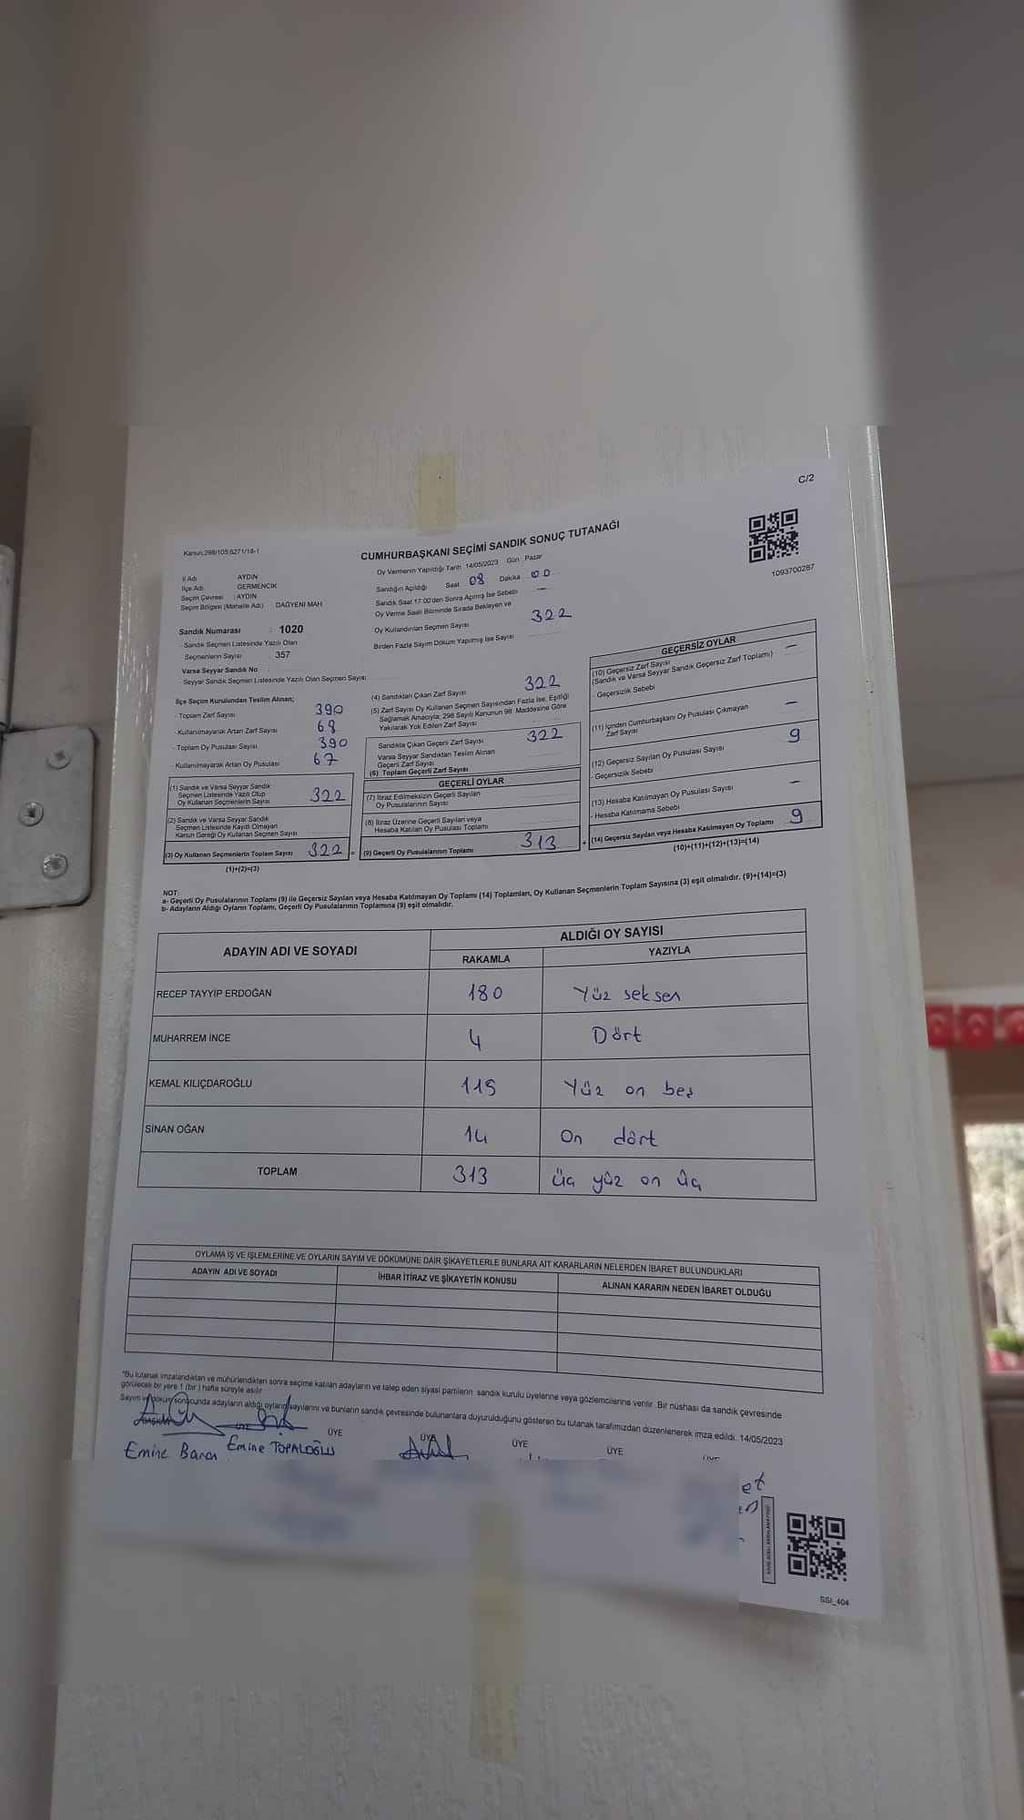 C/2
Kanun:298/105,6271/18-1
CUMHURBAŞKANI SEÇİMİ SANDIK SONUÇ TUTANAĞI
1093700287
İl Adı : AYDIN
İlçe Adı : GERMENCİK
Seçim Çevresi : AYDIN
Seçim Bölgesi (Mahalle Adı) : DAĞYENİ MAH
Sandık Numarası : 1020
Sandık Seçmen Listesinde Yazılı Olan
Seçmenlerin Sayısı : 357
Varsa Seyyar Sandık No
Seyyar Sandık Seçmen Listesinde Yazılı Olan Seçmen Sayısı
Oy Vermenin Yapıldığı Tarih 14/05/2023 Gün Pazar
Sandığın Açıldığı Saat 08 Dakika 00
Sandık Saat 17:00'den Sonra Açılmış İse Sebebi —
Oy Verme Saati Bitiminde Sırada Bekleyen ve
Oy Kullandırılan Seçmen Sayısı 322
Birden Fazla Sayım Döküm Yapılmış İse Sayısı
İlçe Seçim Kurulundan Teslim Alınan;
- Toplam Zarf Sayısı 390
- Kullanılmayarak Artan Zarf Sayısı 68
- Toplam Oy Pusulası Sayısı 390
- Kullanılmayarak Artan Oy Pusulası 67
(1) Sandık ve Varsa Seyyar Sandık
Seçmen Listesinde Yazılı Olup
Oy Kullanan Seçmenlerin Sayısı 322
(2) Sandık ve Varsa Seyyar Sandık
Seçmen Listesinde Kayıtlı Olmayan
Kanun Gereği Oy Kullanan Seçmen Sayısı
(3) Oy Kullanan Seçmenlerin Toplam Sayısı 322
(1)+(2)=(3)
(4) Sandıktan Çıkan Zarf Sayısı 322
(5) Zarf Sayısı Oy Kullanan Seçmen Sayısından Fazla İse, Eşitliği
Sağlamak Amacıyla; 298 Sayılı Kanunun 98. Maddesine Göre
Yakılarak Yok Edilen Zarf Sayısı
Sandıkta Çıkan Geçerli Zarf Sayısı 322
Varsa Seyyar Sandıktan Teslim Alınan
Geçerli Zarf Sayısı
(6) Toplam Geçerli Zarf Sayısı
GEÇERLİ OYLAR
(7) İtiraz Edilmeksizin Geçerli Sayılan
Oy Pusulalarının Sayısı
(8) İtiraz Üzerine Geçerli Sayılan veya
Hesaba Katılan Oy Pusulası Toplamı
(9) Geçerli Oy Pusulalarının Toplamı 313
GEÇERSİZ OYLAR
(10) Geçersiz Zarf Sayısı —
(Sandık ve Varsa Seyyar Sandık Geçersiz Zarf Toplamı)
- Geçersizlik Sebebi
(11) İçinden Cumhurbaşkanı Oy Pusulası Çıkmayan —
Zarf Sayısı
(12) Geçersiz Sayılan Oy Pusulası Sayısı 9
- Geçersizlik Sebebi
(13) Hesaba Katılmayan Oy Pusulası Sayısı —
- Hesaba Katılmama Sebebi
(14) Geçersiz Sayılan veya Hesaba Katılmayan Oy Toplamı 9
(10)+(11)+(12)+(13)=(14)
NOT:
a- Geçerli Oy Pusulalarının Toplamı (9) ile Geçersiz Sayılan veya Hesaba Katılmayan Oy Toplamı (14) Toplamları, Oy Kullanan Seçmenlerin Toplam Sayısına (3) eşit olmalıdır. (9)+(14)=(3)
b- Adayların Aldığı Oyların Toplamı, Geçerli Oy Pusulalarının Toplamına (9) eşit olmalıdır.
ADAYIN ADI VE SOYADI ALDIĞI OY SAYISI
RAKAMLA YAZIYLA
RECEP TAYYİP ERDOĞAN 180 Yüz seksen
MUHARREM İNCE 4 Dört
KEMAL KILIÇDAROĞLU 115 Yüz on beş
SİNAN OĞAN 14 On dört
TOPLAM 313 üç yüz on üç
OYLAMA İŞ VE İŞLEMLERİNE VE OYLARIN SAYIM VE DÖKÜMÜNE DAİR ŞİKAYETLERLE BUNLARA AİT KARARLARIN NELERDEN İBARET BULUNDUKLARI
ADAYIN ADI VE SOYADI İHBAR İTİRAZ VE ŞİKAYETİN KONUSU ALINAN KARARIN NEDEN İBARET OLDUĞU
"Bu tutanak imzalandıktan ve mühürlendikten sonra seçime katılan adayların ve talep eden siyasi partilerin sandık kurulu üyelerine veya gözlemcilerine verilir. Bir nüshası da sandık çevresinde
görülecek bir yere 1 (bir) hafta süreyle asılır
Sayım ve döküm sonucunda adayların aldığı oyların sayılarını ve bunların sandık çevresinde bulunanlara duyurulduğunu gösteren bu tutanak tarafımızdan düzenlenerek imza edildi. 14/05/2023
ÜYE ÜYE ÜYE ÜYE
Emine Baran Emine TOPALOĞLU
et
SSI_404